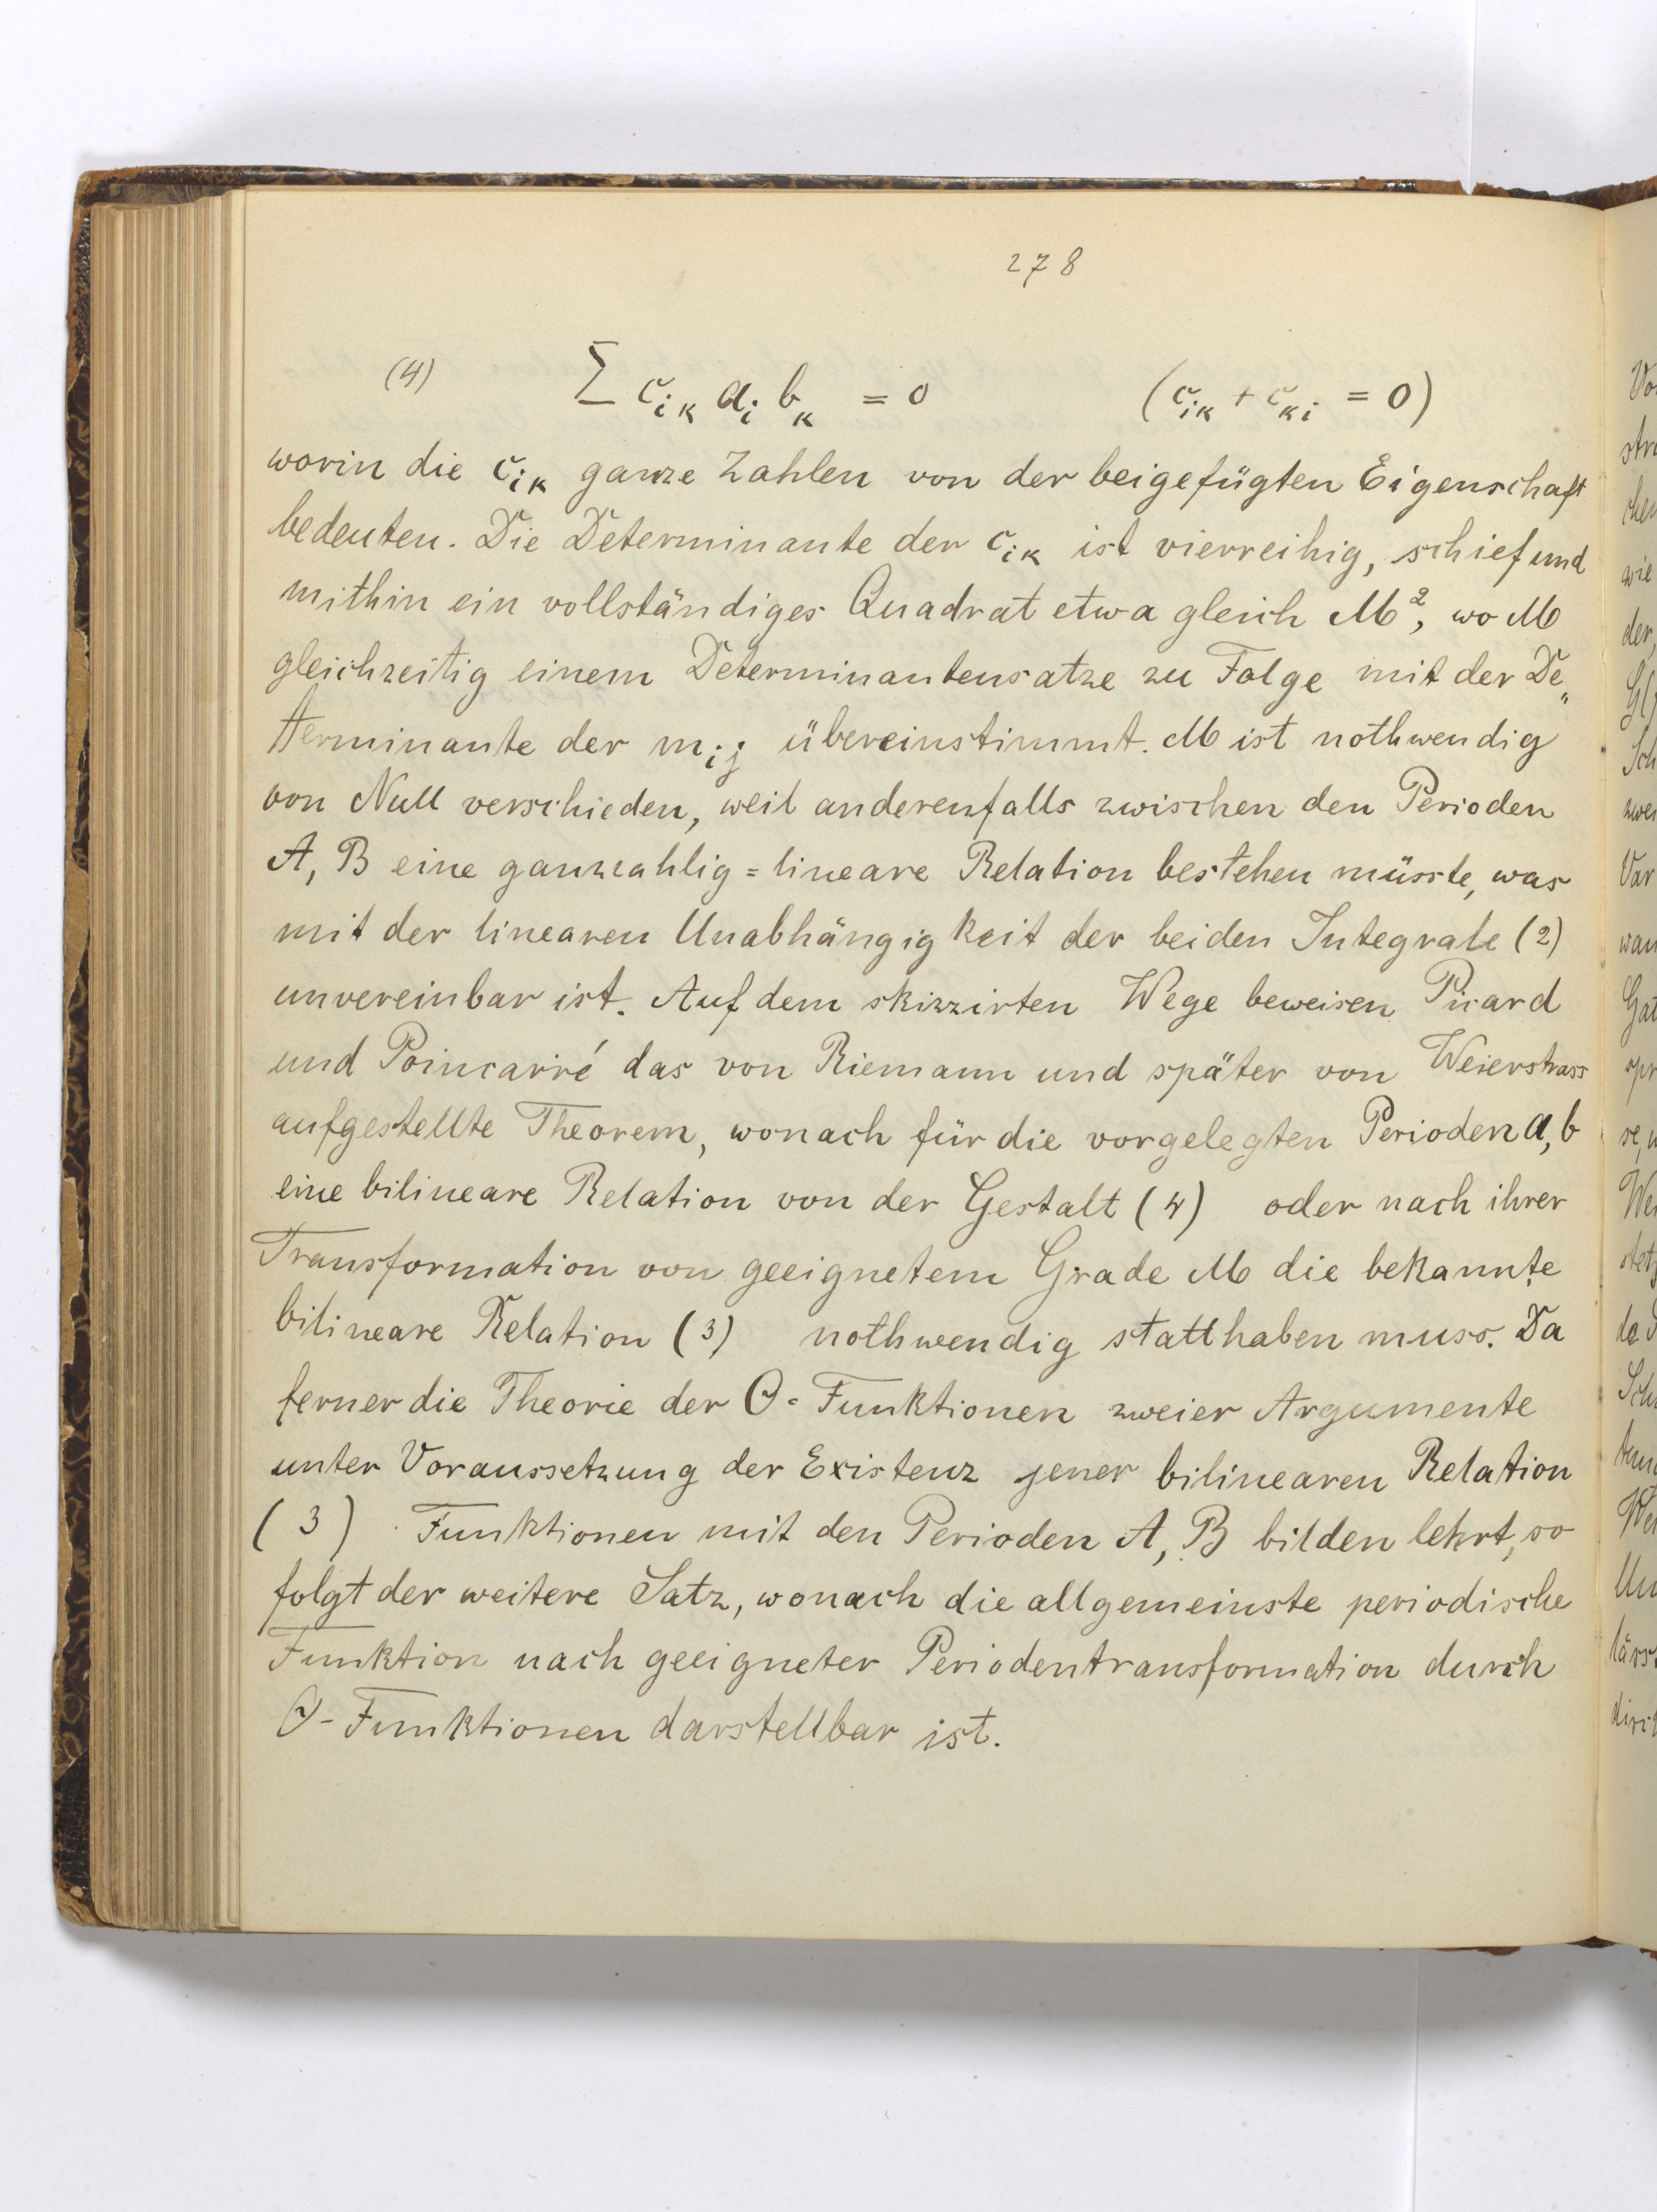 278
(4) Σ c_{ik} a_i b_k = 0 (c_{ik} + c_{ki} = 0)
worin die c_{ik} ganze Zahlen von der beigefügten Eigenschaft
bedeuten. Die Determinante der c_{ik} ist vierreihig, schief und
mithin ein vollständiges Quadrat etwa gleich M², wo M
gleichzeitig einem Determinantensatze zu Folge mit der De„
terminante der m_{ij} übereinstimmt. M ist nothwendig
von Null verschieden, weil anderenfalls zwischen den Perioden
A, B eine ganzzahlig=lineare Relation bestehen müsste, was
mit der linearen Unabhängigkeit der beiden Integrale (2)
unvereinbar ist. Auf dem skizzirten Wege beweisen Picard
und Poincarré das von Riemann und später von Weierstrass
aufgestellte Theorem, wonach für die vorgelegten Perioden a, b
eine bilineare Relation von der Gestalt (4) oder nach ihrer
Transformation von geeignetem Grade M die bekannte
bilineare Relation (3) nothwendig statthaben muss. Da
ferner die Theorie der Θ=Funktionen zweier Argumente
unter Voraussetzung der Existenz jener bilinearen Relation
(3) Funktionen mit den Perioden A, B bilden lehrt, so
folgt der weitere Satz, wonach die allgemeinste periodische
Funktion nach geeigneter Periodentransformation durch
Θ-Funktionen darstellbar ist.